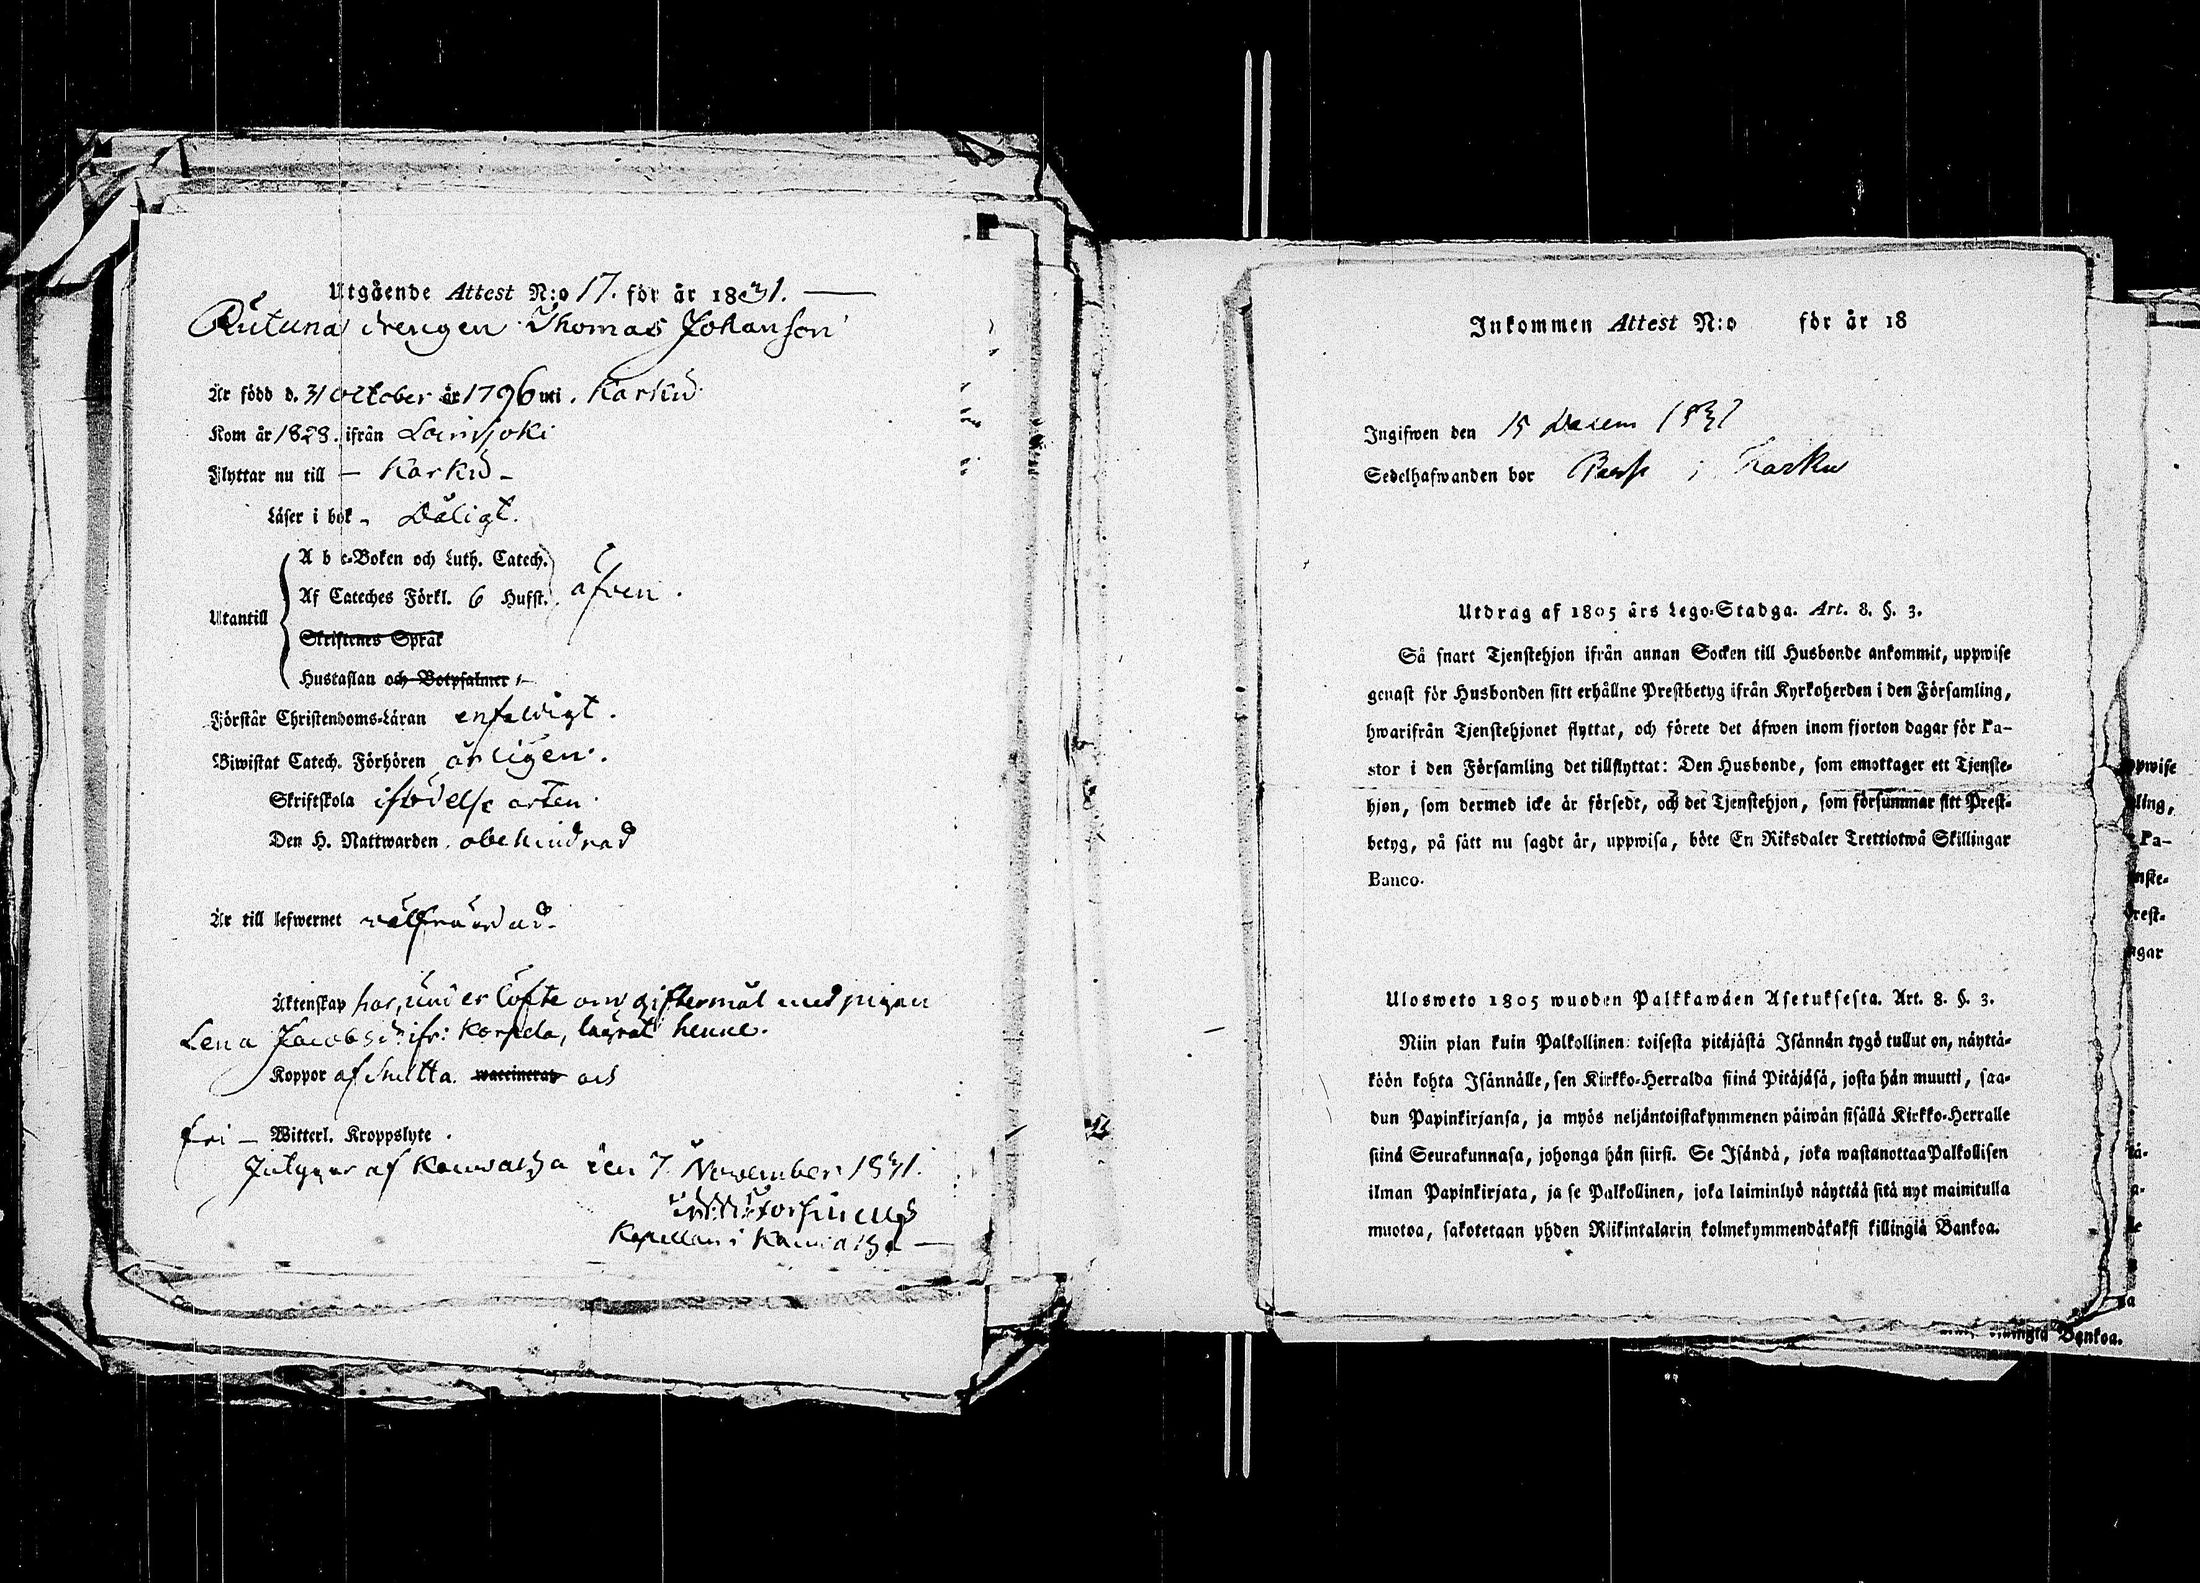 Utgående Attest N:o 17. för år 1831.
Rutuna drengen Thomas Johansson
Är född d. 31 october år 1796 uti Karku
Kom år 1828 ifrån Loimjoki
Flyttar nu till – Karku –
Läser i bok Dåligt.
A b c-Boken och Luth. Catech.
Af Cateches Förkl. 6 Hufst. äfven.
Utantill
Skriftenes Språk
Hustaflan och Botpsalmer
Förstår Christendoms-Läran enfaldigt.
Biwistat Catech. Förhören årligen.
Skriftskola i födelse orten
Den H. Nattwarden obehindrad
Är till lefwernet välfräjdad.
Äktenskap har, under löfte om giftermål med pigan
Lena Jacobsdr ifr: Korpela, lägrat henne.
Koppor af Smitta. waccinerad och
fri – Witterl. Kroppslyte.
Intygar af Kauvatsa den 7 November 1831.
Kapellan i Kauvatsa
Inkommen Attest N:o för år 18
Ingifwen den 15 Decem 1831
Sedelhafwanden bor i Karku
Utdrag af 1805 års Lego-Stadga. Art. 8. §. 3.
Så snart Tjenstehjon ifrån annan Socken till Husbonde ankommit, uppwise
genast för Husbonden sitt erhållne Prestbetyg ifrån Kyrkoherden i den Församling,
hwarifrån Tjenstehjonet flyttat, och förete det äfwen inom fjorton dagar för Pa-
stor i den Församling det tillflyttat: Den Husbonde, som emottager ett Tjenste-
hjon, som dermed icke är försedt, och det Tjenstehjon, som försummar sitt Prest-
betyg, på sätt nu sagdt är, uppwisa, böte En Riksdaler Trettiotwå Skillingar
Banco.
Ulosweto 1805 wuoden Palkkawäen Asetuksesta. Art. 8. §. 3.
Niin pian kuin Palkollinen toisesta pitäjästä Isännän tygö tullut on, näyttä-
köön kohta Isännälle, sen Kirkko-Herralda siinä Pitäjäsä, josta hän muutti, saa-
dun Papinkirjansa, ja myös neljäntoistakymmenen päiwän sisällä Kirkko-Herralle
siinä Seurakunnasa, johonga hän siirsi. Se Isändä, joka wastanottaa Palkollisen
ilman Papinkirjata, ja se Palkollinen, joka laiminlyö näyttää sitä nyt mainitulla
muotoa, sakotetaan yhden Riikintalarin kolmekymmendäkaksi killingiä Bankoa.